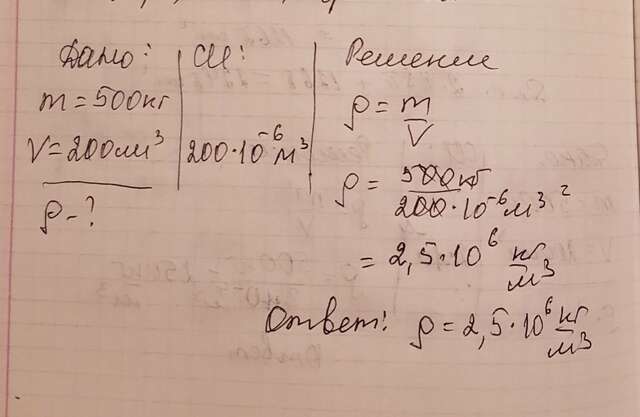 Дано:
m = 500кг
V = 200см³
ρ - ?
СИ:
200·10⁻⁶м³
Решение
ρ = m/V
ρ = 500кг / 200·10⁻⁶м³
= 2,5·10⁶ кг/м³
Ответ: ρ = 2,5·10⁶ кг/м³